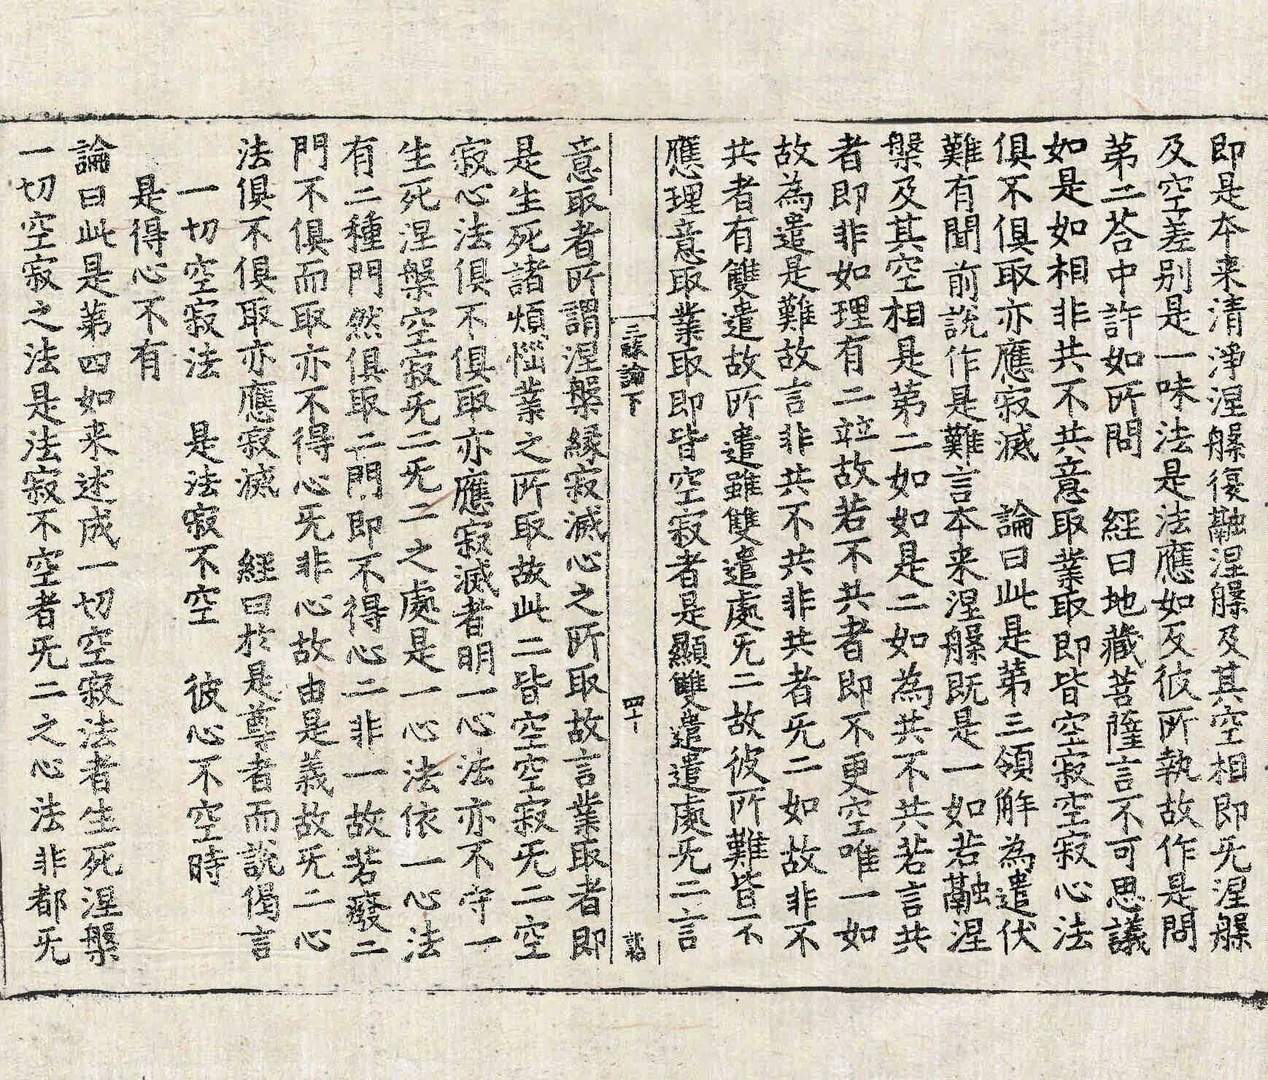 即是本来清淨涅槃復融涅槃及其空相即旡涅槃
及空差别是一味法是法應如及彼所執故作是問
苐二荅中許如所問　經曰地藏菩薩言不可思議
如是如相非共不共意取業取即皆空寂空寂心法
俱不俱取亦應寂滅　論曰此是苐三領解為遣伏
難有聞前說作是難言本来涅槃既是一如若融涅
槃及其空相是苐二如如是二如為共不共若言共
者即非如理有二竝故若不共者即不更空唯一如
故為遣是難故言非共不共非共者旡二如故非不
共者有雙遣故所遣雖雙遣處旡二故彼所難皆不
應理意取業取即皆空寂者是顯雙遣遣處旡二言
三昧論下　四十
意取者所謂涅槃緣寂滅心之所取故言業取者即
是生死諸煩惱業之所取故此二皆空空寂旡二空
寂心法俱不俱取亦應寂滅者明一心法亦不守一
生死涅槃空寂旡二旡二之處是一心法依一心法
有二種門然俱取二門即不得心二非一故若廢二
門不俱而取亦不得心旡非心故由是義故旡二心
法俱不俱取亦應寂滅　經曰於是尊者而說偈言
一切空寂法　是法寂不空　彼心不空時
是得心不有
論曰此是苐四如来述成一切空寂法者生死涅槃
一切空寂之法是法寂不空者旡二之心法非都旡